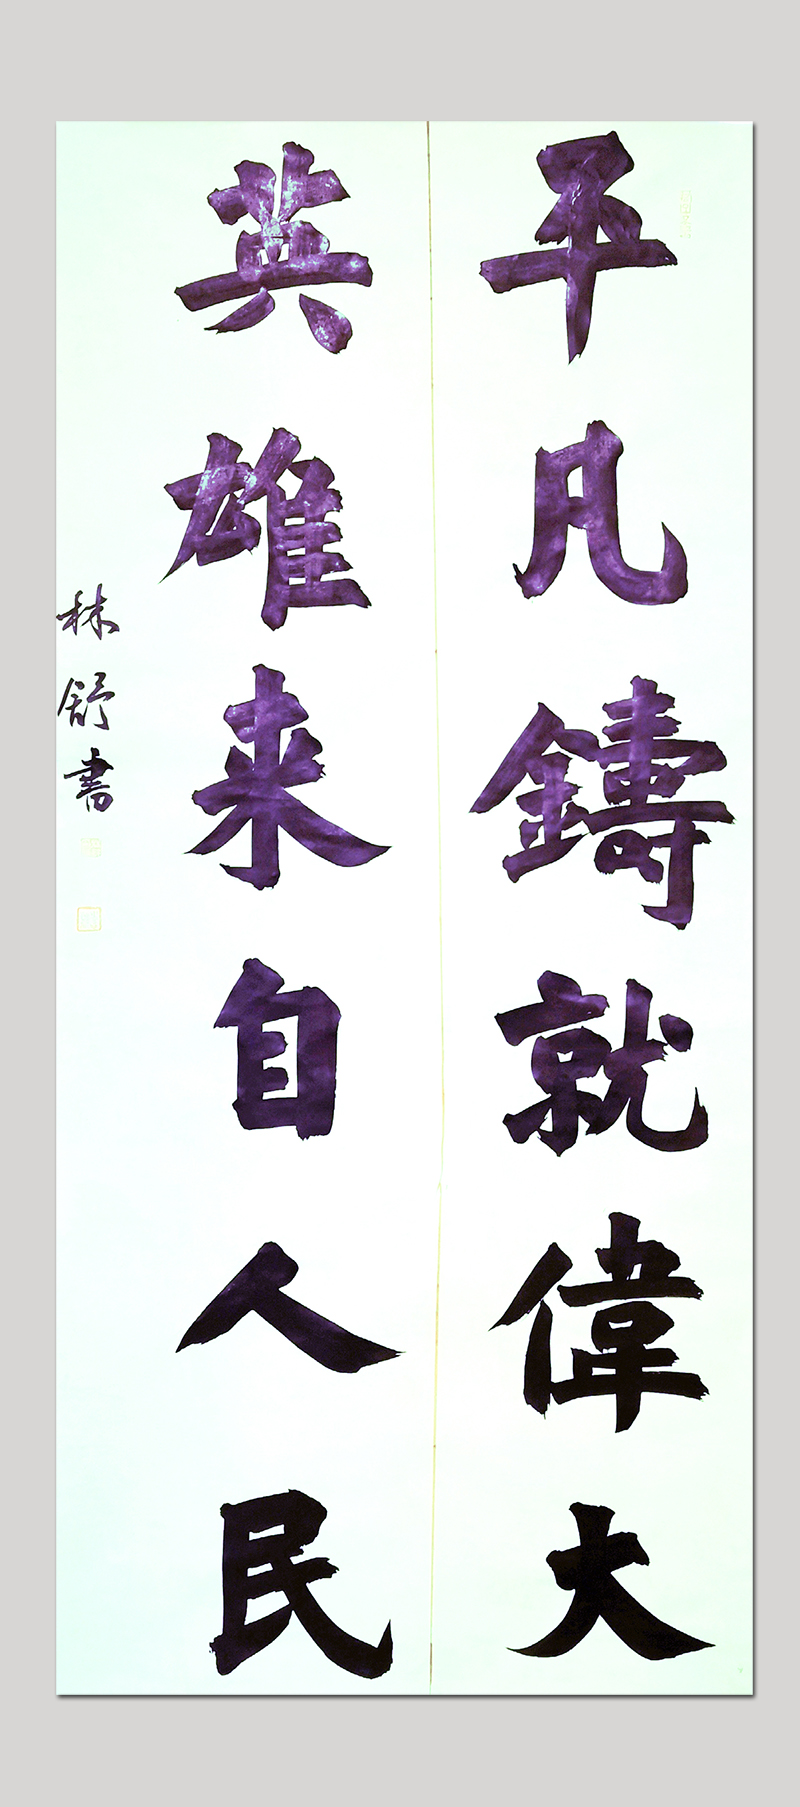 平凡鑄就偉大
英雄来自人民
林舒書